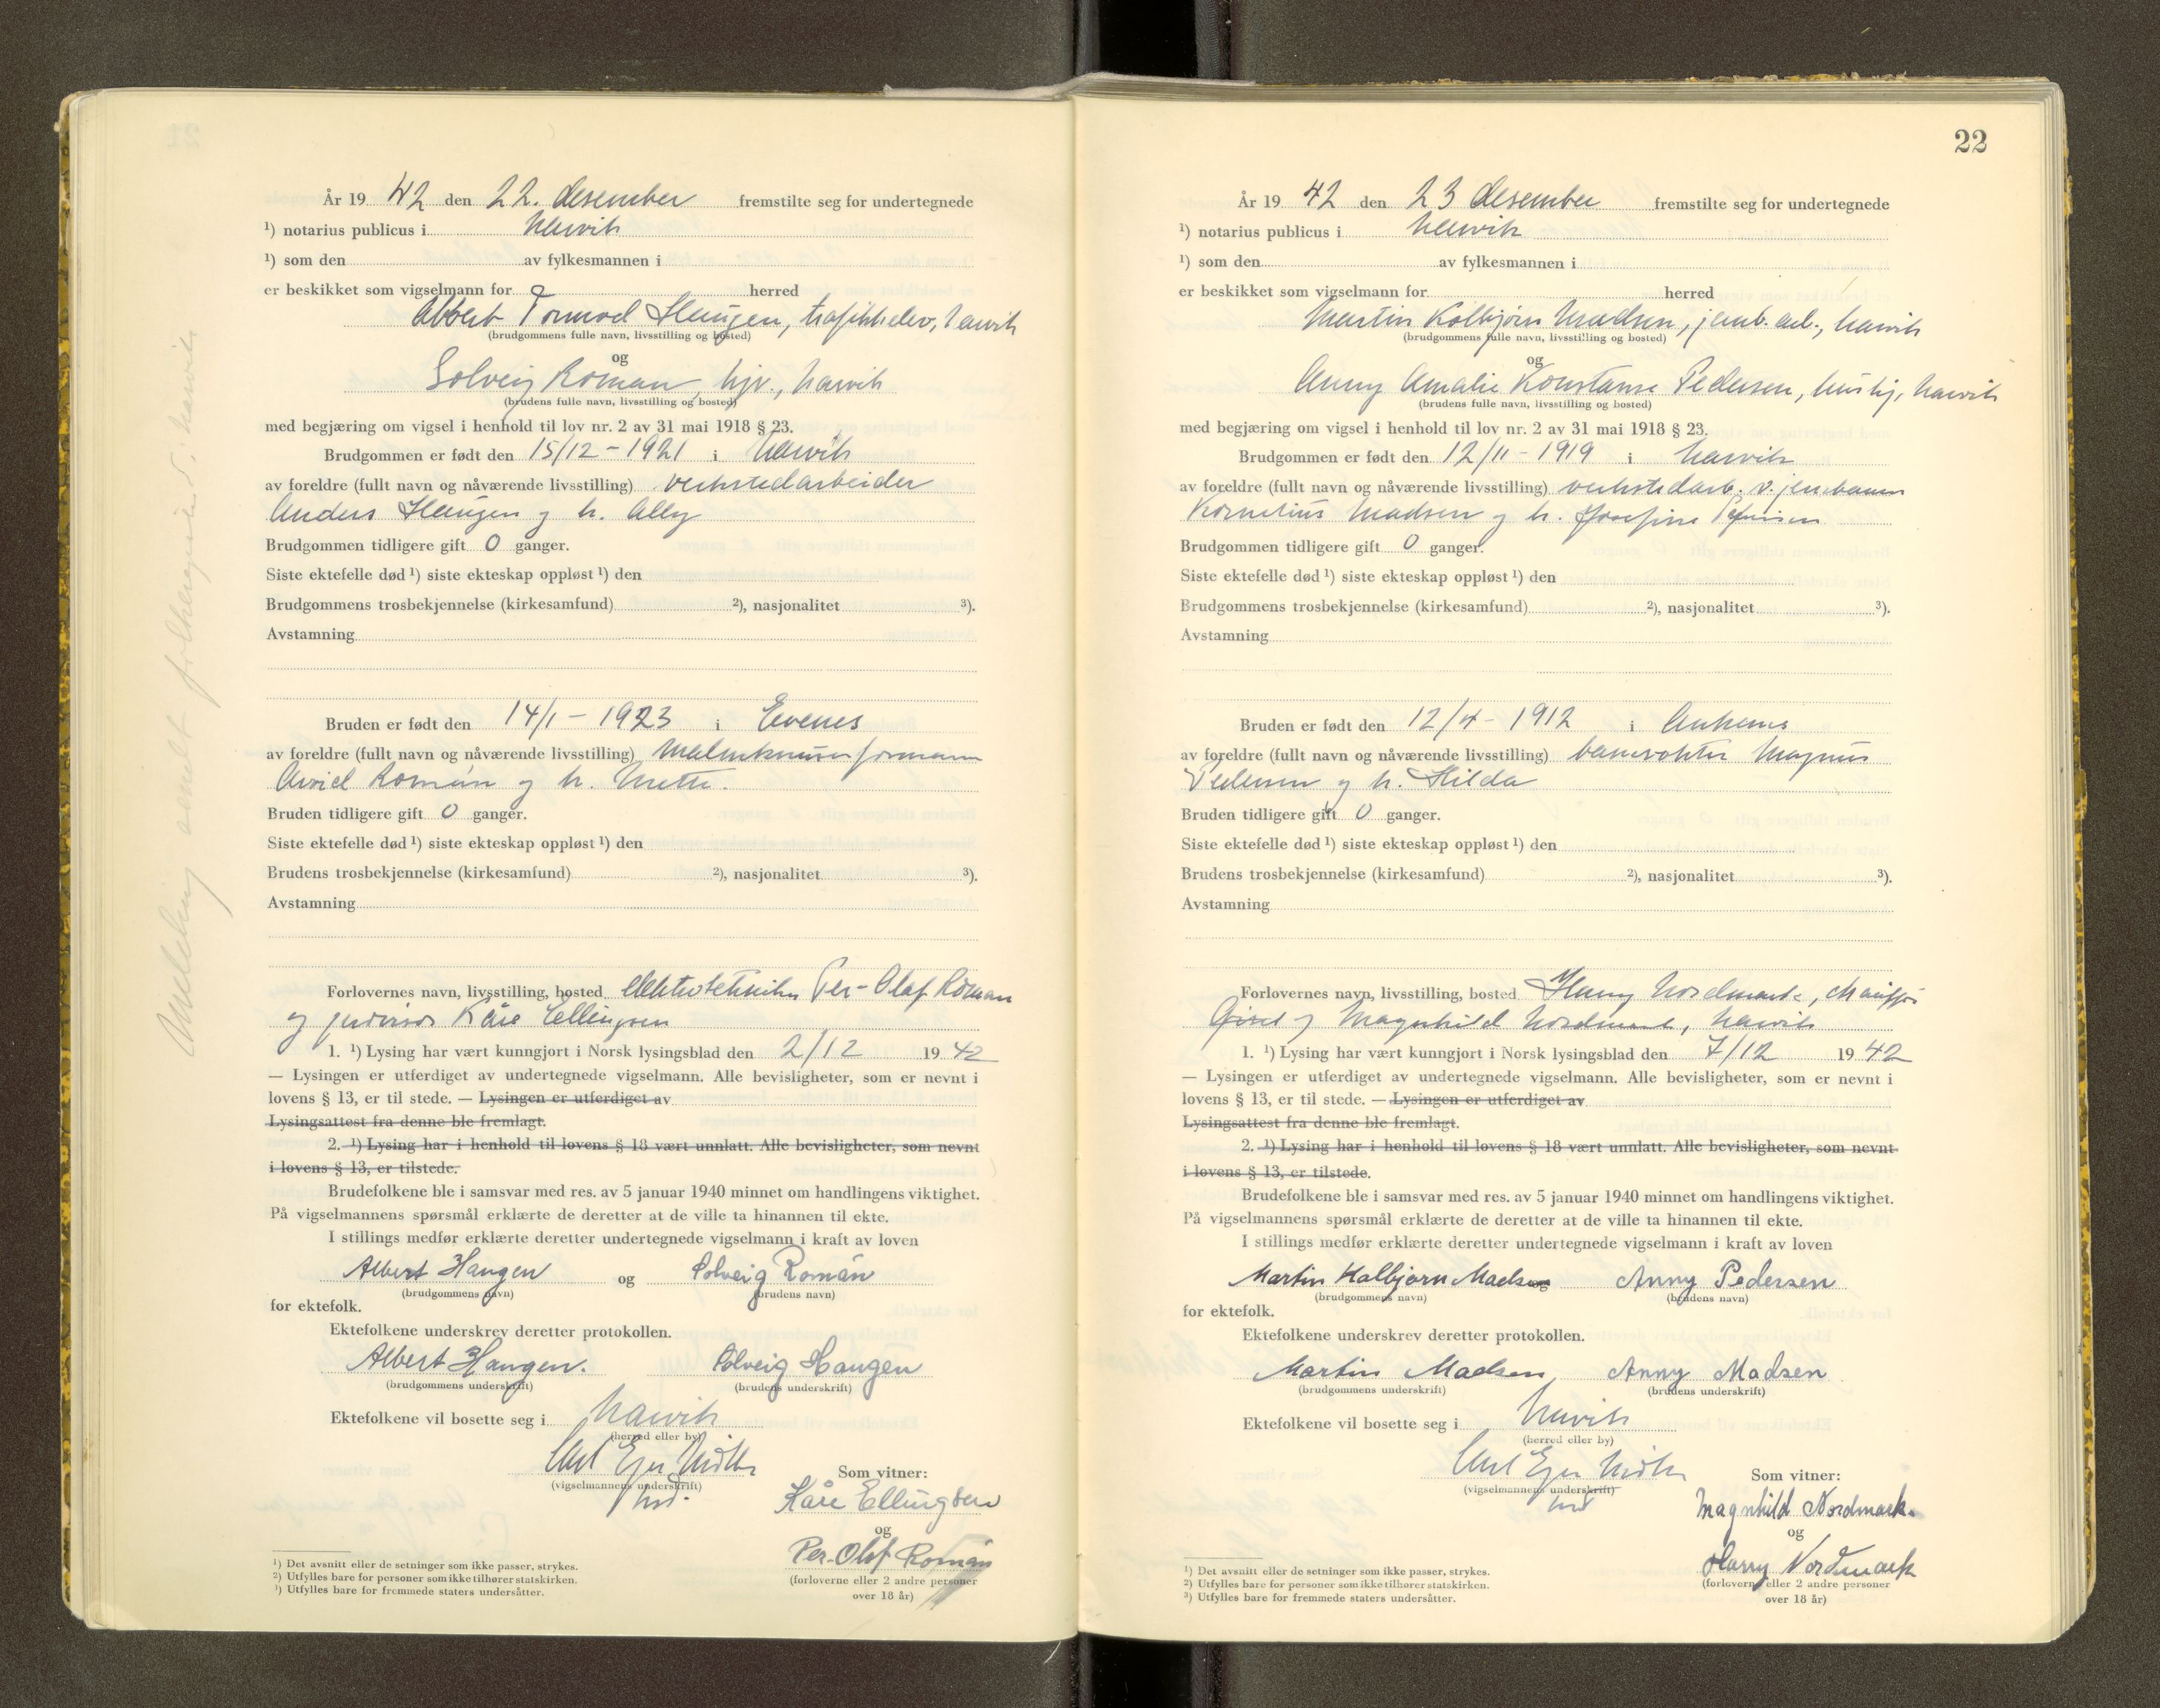 År 19 42 den 22. desember fremstilte seg for undertegnede
¹) notarius publicus i Narvik
¹) som den av fylkesmannen i
er beskikket som vigselmann for herred
Albert Tormod Haugen, trafikkelev, Narvik
(brudgommens fulle navn, livsstilling og bosted)
og
Solveig Roman, hjv., Narvik
(brudens fulle navn, livsstilling og bosted)
med begjæring om vigsel i henhold til lov nr. 2 av 31 mai 1918 § 23.
Brudgommen er født den 15/12 - 1921 i Narvik
av foreldre (fullt navn og nåværende livsstilling) verkstedarbeider
Anders Haugen og h. Ally
Brudgommen tidligere gift 0 ganger.
Siste ektefelle død ¹) siste ekteskap oppløst ¹) den
Brudgommens trosbekjennelse (kirkesamfund) ²), nasjonalitet ³).
Avstamning
Bruden er født den 14/1 - 1923 i Evenes
av foreldre (fullt navn og nåværende livsstilling) formann
Arvid Román og h. Mette.
Bruden tidligere gift 0 ganger.
Siste ektefelle død ¹) siste ekteskap oppløst ¹) den
Brudens trosbekjennelse (kirkesamfund) ²), nasjonalitet ³).
Avstamning
Forlovernes navn, livsstilling, bosted elektrotekniker Per-Olaf Roman
og Kåre Ellingsen
1. ¹) Lysing har vært kunngjort i Norsk lysingsblad den 2/12 19 42
— Lysingen er utferdiget av undertegnede vigselmann. Alle bevisligheter, som er nevnt i
lovens § 13, er til stede. — Lysingen er utferdiget av
Lysingsattest fra denne ble fremlagt.
2. ¹) Lysing har i henhold til lovens § 18 vært unnlatt. Alle bevisligheter, som nevnt
i lovens § 13, er tilstede.
Brudefolkene ble i samsvar med res. av 5 januar 1940 minnet om handlingens viktighet.
På vigselmannens spørsmål erklærte de deretter at de ville ta hinannen til ekte.
I stillings medfør erklærte deretter undertegnede vigselmann i kraft av loven
Albert Haugen og Solveig Román
(brudgommens navn) (brudens navn)
for ektefolk.
Ektefolkene underskrev deretter protokollen.
Albert Haugen. Solveig Haugen
(brudgommens underskrift) (brudens underskrift)
Ektefolkene vil bosette seg i Narvik
(herred eller by)
Som vitner:
(vigselmannens underskrift)
Kåre Ellingsen
og
Per-Olof Román
(forloverne eller 2 andre personer
over 18 år)
¹) Det avsnitt eller de setninger som ikke passer, strykes.
²) Utfylles bare for personer som ikke tilhører statskirken.
³) Utfylles bare for fremmede staters undersåtter.
Melding sendt folkeregisteret i Narvik
22
År 19 42 den 23 desember fremstilte seg for undertegnede
¹) notarius publicus i Narvik
¹) som den av fylkesmannen i
er beskikket som vigselmann for herred
Martin Kolbjørn Madsen, jernb. arb., Narvik
(brudgommens fulle navn, livsstilling og bosted)
og
Anny Amalie Konstanse Pedersen, hushj., Narvik
(brudens fulle navn, livsstilling og bosted)
med begjæring om vigsel i henhold til lov nr. 2 av 31 mai 1918 § 23.
Brudgommen er født den 12/11 - 1919 i Narvik
av foreldre (fullt navn og nåværende livsstilling) verkstedarb. v. jernbanen
Kornelius Madsen og h. Josefine
Brudgommen tidligere gift 0 ganger.
Siste ektefelle død ¹) siste ekteskap oppløst ¹) den
Brudgommens trosbekjennelse (kirkesamfund) ²), nasjonalitet ³).
Avstamning
Bruden er født den 12/4 - 1912 i Ankenes
av foreldre (fullt navn og nåværende livsstilling) banevokter Magnus
Pedersen og h. Hilda
Bruden tidligere gift 0 ganger.
Siste ektefelle død ¹) siste ekteskap oppløst ¹) den
Brudens trosbekjennelse (kirkesamfund) ²), nasjonalitet ³).
Avstamning
Forlovernes navn, livsstilling, bosted Harry Nordmark, chauffør
og Magnhild Nordmark, Narvik
1. ¹) Lysing har vært kunngjort i Norsk lysingsblad den 7/12 19 42
— Lysingen er utferdiget av undertegnede vigselmann. Alle bevisligheter, som er nevnt i
lovens § 13, er til stede. — Lysingen er utferdiget av
Lysingsattest fra denne ble fremlagt.
2. ¹) Lysing har i henhold til lovens § 18 vært unnlatt. Alle bevisligheter, som nevnt
i lovens § 13, er tilstede.
Brudefolkene ble i samsvar med res. av 5 januar 1940 minnet om handlingens viktighet.
På vigselmannens spørsmål erklærte de deretter at de ville ta hinannen til ekte.
I stillings medfør erklærte deretter undertegnede vigselmann i kraft av loven
Martin Kolbjørn Madsen Anny Pedersen
(brudgommens navn) (brudens navn)
for ektefolk.
Ektefolkene underskrev deretter protokollen.
Martin Madsen Anny Madsen
(brudgommens underskrift) (brudens underskrift)
Ektefolkene vil bosette seg i Narvik
(herred eller by)
Som vitner:
(vigselmannens underskrift)
Magnhild Nordmark.
og
Harry Nordmark
(forloverne eller 2 andre personer
over 18 år)
¹) Det avsnitt eller de setninger som ikke passer, strykes.
²) Utfylles bare for personer som ikke tilhører statskirken.
³) Utfylles bare for fremmede staters undersåtter.